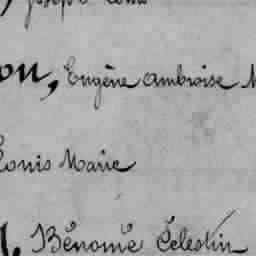 on, Eugène Ambroise
Louis Marie
Bénomé Célestin